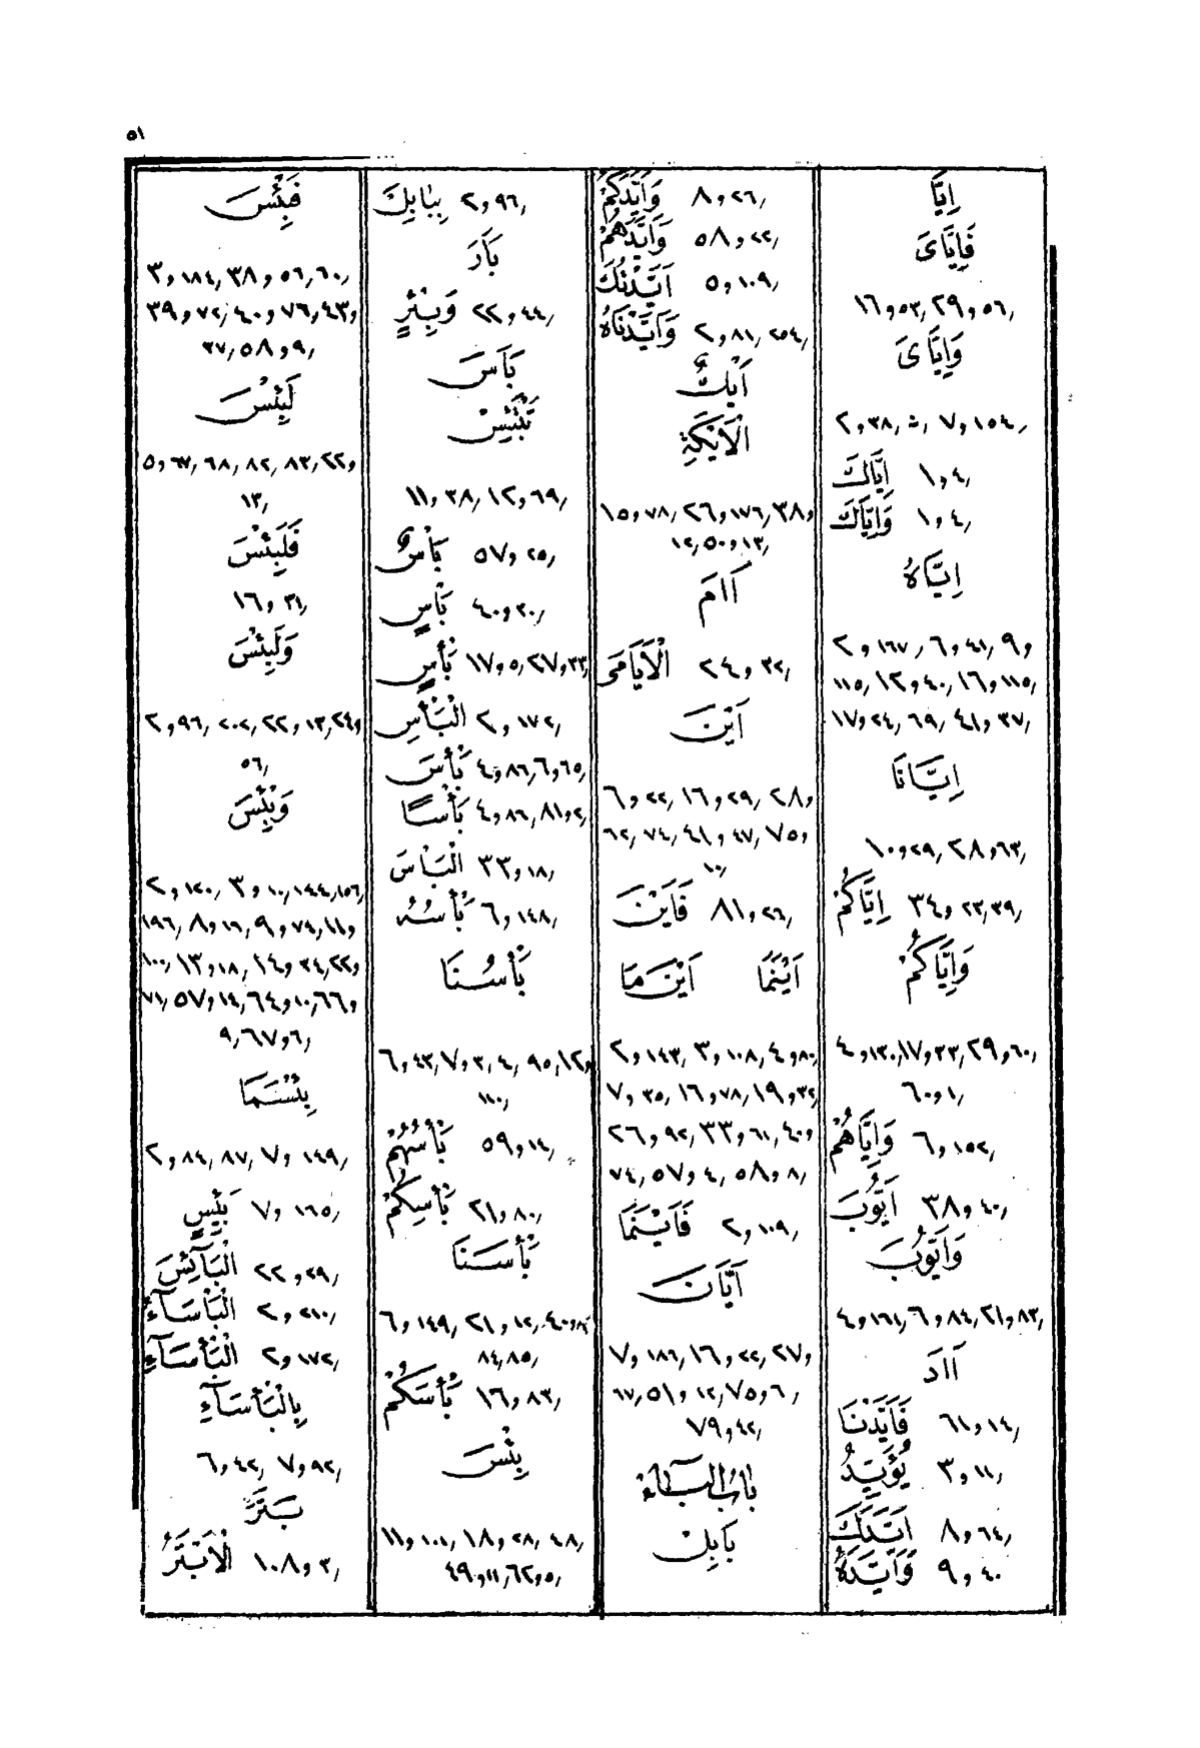 ٥١
اِيَّا
فَاِيَّاىَ
١٦و٥٣, ٢٩و٥٦,
وَاِيَّاىَ
٢و٣٨, ٧و١٥٤,
اِيَّاكَ ١و٤,
وَاِيَّاكَ ١و٤,
اِيَّاهُ
٢و١٦٧, ٦و٤١, ٩و
١١٥, ١٢و٤٠, ١٦و١١٥,
١٧و٢٤, ٦٩, ٤١و٣٧,
اِيَّانَا
١٠و٢٩, ٢٨و٦٣,
اِيَّاكُمْ ٣٤و٢٣, ٣٩,
وَاِيَّاكُمْ
٤و١٣٠, ١٧و٣٣, ٢٩و٦٠,
٦٠و١,
وَاِيَّاهُمْ ٦و١٥٢,
اَيُّوبَ ٣٨و٤٠,
وَاَيُّوبَ
٤و١٦١, ٦و٨٤, ٢١و٨٣,
اَادَ
فَاَيَّدْنَا ٦١و١٤,
يُؤَيِّدُ ٣و١١,
اَيَّدَكَ ٨و٦٤,
وَاَيَّدَهُ ٩و٤٠
وَاَيَّدَكُمْ ٨و٢٦,
وَاَيَّدَهُمْ ٥٨و٢٢,
اَيَّدْتُكَ ٥و١٠٩,
وَاَيَّدْنَاهُ ٢و٨١, ٢٥٤,
اَيْكٌ
الْاَيْكَةِ
١٥و٧٨, ٢٦و١٧٦, ٣٨و
١٣و٥٠, ١٢,
اَامَ
الْاَيَامَى ٢٤و٣٢,
اَيْنَ
٦و٢٢, ١٦و٢٩, ٢٨و
٦٢, ٧٤, ٤١و٤٧, ٧٥و
١٠,
فَاَيْنَ ٨١و٢٦,
اَيْنَمَا اَيْنَ مَا
٢و١٤٣, ٣و١٠٨, ٤و٨٠,
٧و٣٥, ١٦و٧٨, ١٩و٣٢,
٢٦و٩٢, ٣٣و٦١, ٤٠و
٧٤, ٥٧و٤, ٥٨و٨,
فَاَيْنَمَا ٢و١٠٩,
اَيَّانَ
٧و١٨٦, ١٦و٢٢, ٢٧و
٦٧, ٥١و١٢, ٧٥و٦,
٧٩و٤٢,
بَابُ الْبَاءِ
بَابِلْ
بِبَابِلَ ٢و٩٦,
بَاَرَ
وَبِئْرٍ ٢٢و٤٤,
بَاَسَ
تَبْتَئِسْ
١١و٣٨, ١٢و٦٩,
بَأْسٌ ٥٧و٢٥,
بَأْسِ ٤٠و٣٠,
بَأْسٍ ١٧و٥, ٢٧و٣٣,
الْبَأْسِ ٢و١٧٢,
بَأْسَ ٤و٨٦, ٦و٦٥,
بَأْسًا ٤و٨٦, ١٨و٢,
الْبَأْسَ ٣٣و١٨,
بَأْسُهُ ٦و١٤٨,
بَأْسُنَا
٦و٤٣, ٧و٣, ٤, ٩٥, ١٢و
١١٠,
بَأْسُهُمْ ٥٩و١٤,
بَأْسِكُمْ ٢١و٨٠,
بَأْسَنَا
٦و١٤٩, ٢١و١٢, ٤٠و
٨٤, ٨٥,
بَأْسَكُمْ ١٦و٨٣,
بِئْسَ
١١و١٠١, ١٨و٢٨, ٤٨,
٤٩و١١, ٦٢و٥,
فَبِئْسَ
٣و١٨٤, ٣٨و٥٦, ٦٠,
٣٩و٧٢, ٤٠و٧٦, ٤٣و
٣٧, ٥٨و٩,
لَبِئْسَ
٥و٦٧, ٦٨, ٨٢, ٨٣, ٢٢و
١٣,
فَلَبِئْسَ
١٦و٣١,
وَلَبِئْسَ
٢و٩٦, ٢٠٢, ٢٢و١٣, ٢٤و
٥٦,
وَبِئْسَ
٢و١٢٠, ٣و١٠, ١٤٤, ١٥٦,
١٩٦, ٨و١٦, ٩و٧٤, ١١و
١٠٠, ١٣و١٨, ١٤و٣٤, ٢٢و
٧١, ٥٧و١٤, ٦٤و١٠, ٦٦و
٩, ٦٧و٦,
بِئْسَمَا
٢و٨٤, ٨٧, ٧و١٤٩,
بَئِيسٍ ٧و١٦٥,
الْبَآئِسَ ٢٢و٢٩,
الْبَأْسَآءُ ٢و٢١٠,
الْبَأْسَآءِ ٢و١٧٢,
بِالْبَأْسَآءِ
٦و٤٢, ٧و٩٢,
بَتَرَ
الْاَبْتَرُ ١٠٨و٣,